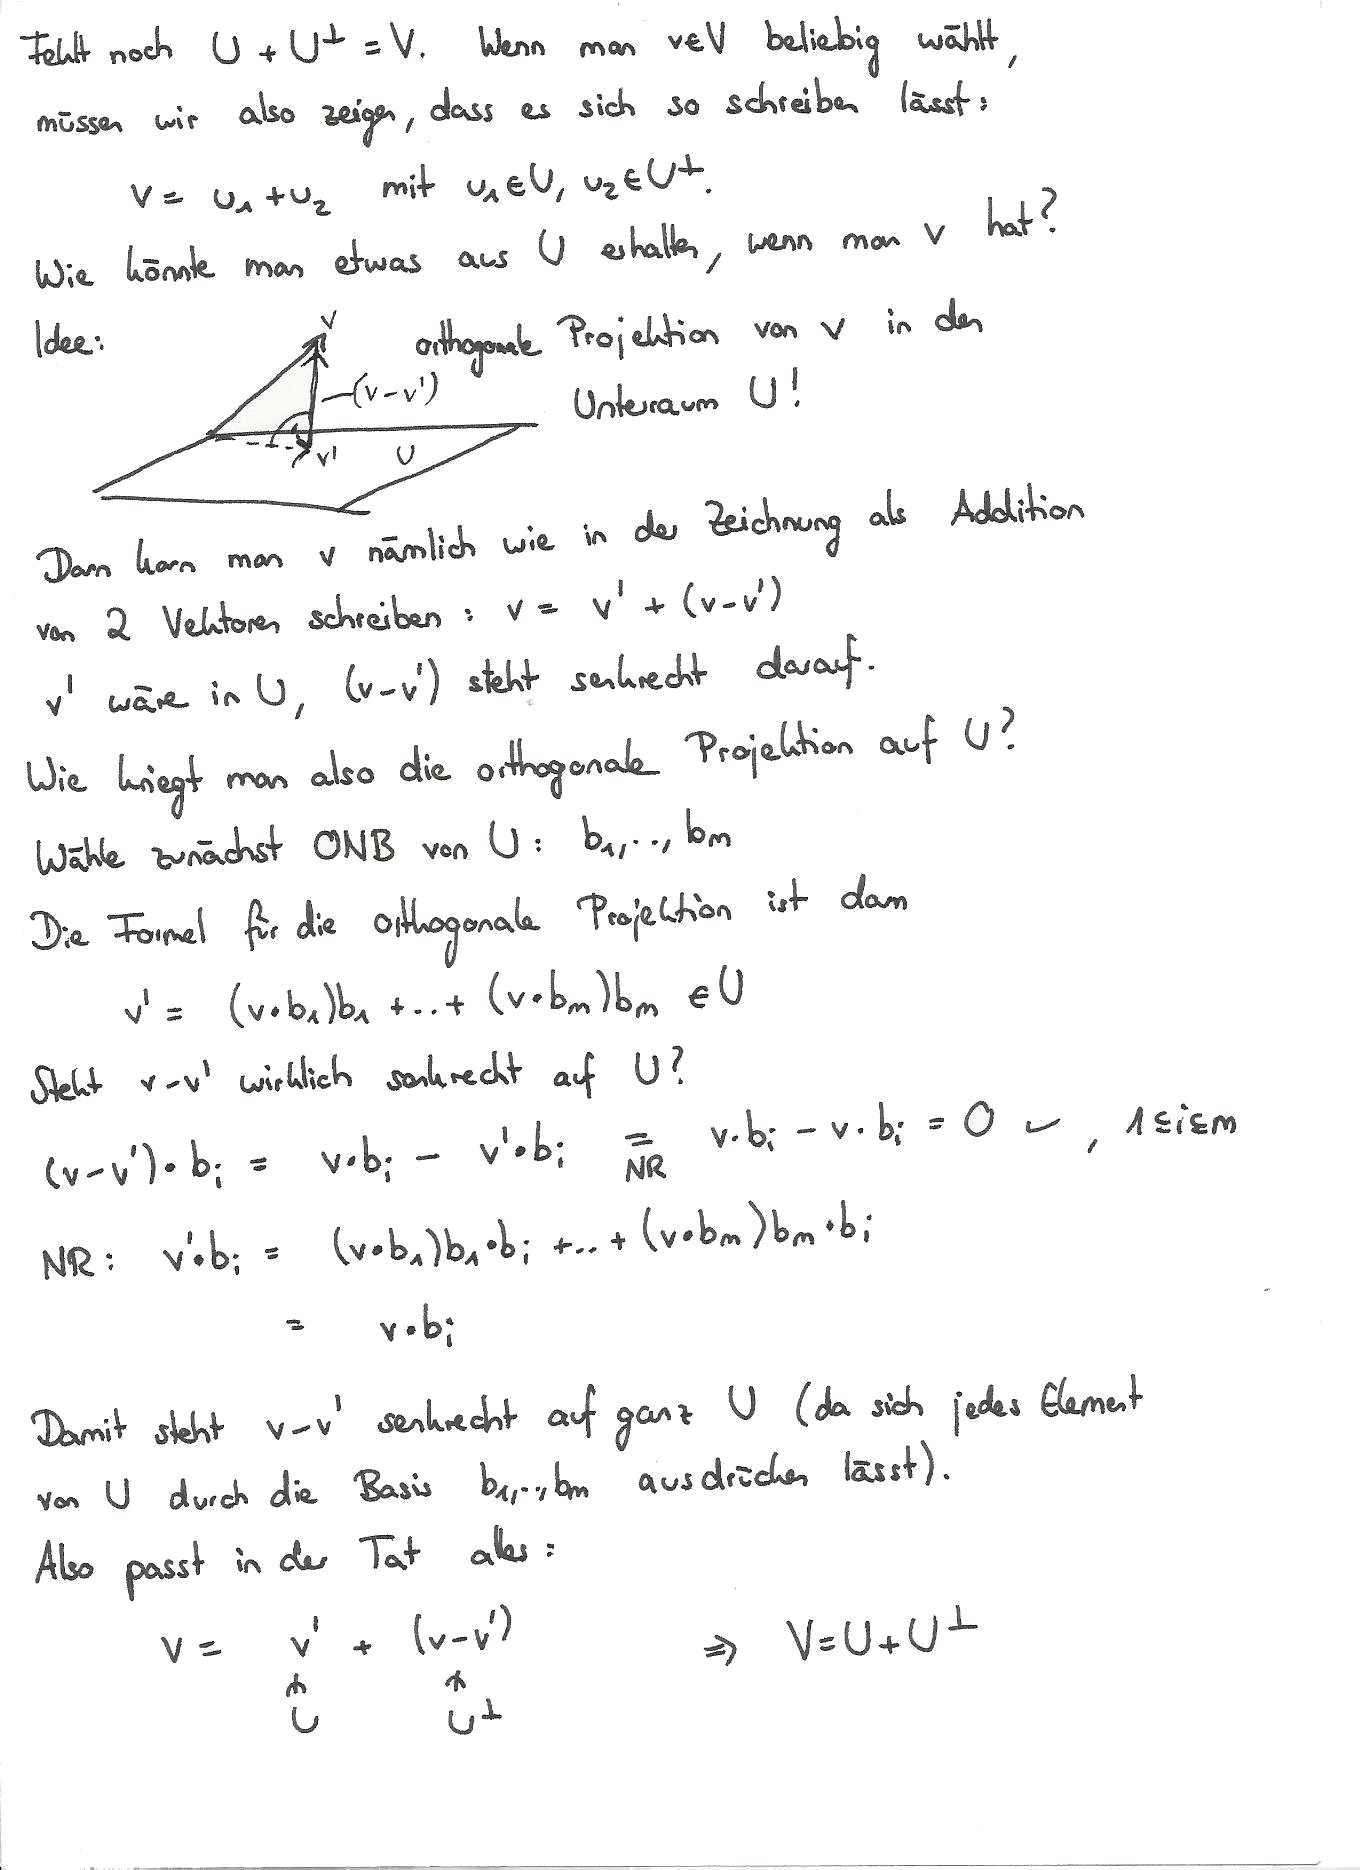 Fehlt noch U + U⊥ = V. Wenn man v∈V beliebig wählt,
müssen wir also zeigen, dass es sich so schreiben lässt:
v = u₁ + u₂ mit u₁∈U, u₂∈U⊥.
Wie könnte man etwas aus U erhalten, wenn man v hat?
Idee: orthogonale Projektion von v in den
Unterraum U!
v
(v-v')
v'
U
Dann kann man v nämlich wie in der Zeichnung als Addition
von 2 Vektoren schreiben: v = v' + (v-v')
v' wäre in U, (v-v') steht senkrecht darauf.
Wie kriegt man also die orthogonale Projektion auf U?
Wähle zunächst ONB von U: b₁,..,bₘ
Die Formel für die orthogonale Projektion ist dann
v' = (v•b₁)b₁ +..+ (v•bₘ)bₘ ∈U
Steht v-v' wirklich senkrecht auf U?
(v-v')•bᵢ = v•bᵢ - v'•bᵢ = NR v•bᵢ - v•bᵢ = 0 ✓, 1≤i≤m
NR: v'•bᵢ = (v•b₁)b₁•bᵢ +..+ (v•bₘ)bₘ•bᵢ
= v•bᵢ
Damit steht v-v' senkrecht auf ganz U (da sich jedes Element
von U durch die Basis b₁,..,bₘ ausdrücken lässt).
Also passt in der Tat alles:
v = v' + (v-v') ⇒ V=U+U⊥
∈ ∈
U U⊥